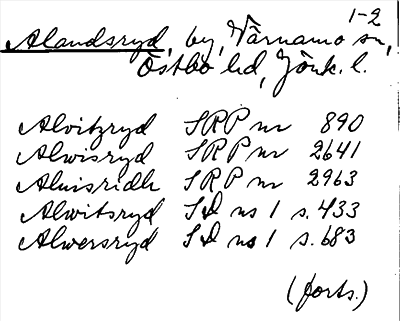 1-2
Alandsryd, by, Värnamo sn,
Östbo hd, Jönk. l.
Alvitzryd SRP nr 890
Alwisryd SRP nr 2641
Aluisridh SRP nr 2963
Alwitsryd SD ns 1 s. 433
Alwersryd SD ns 1 s. 683
(forts.)